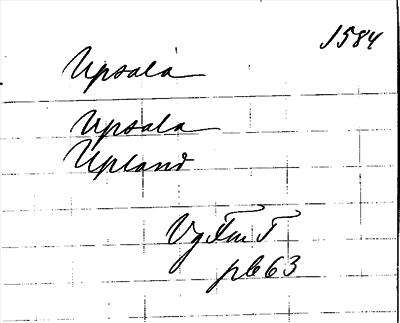 1584
Upsala
Upsala
Upland
Vg Fm T
pl 63